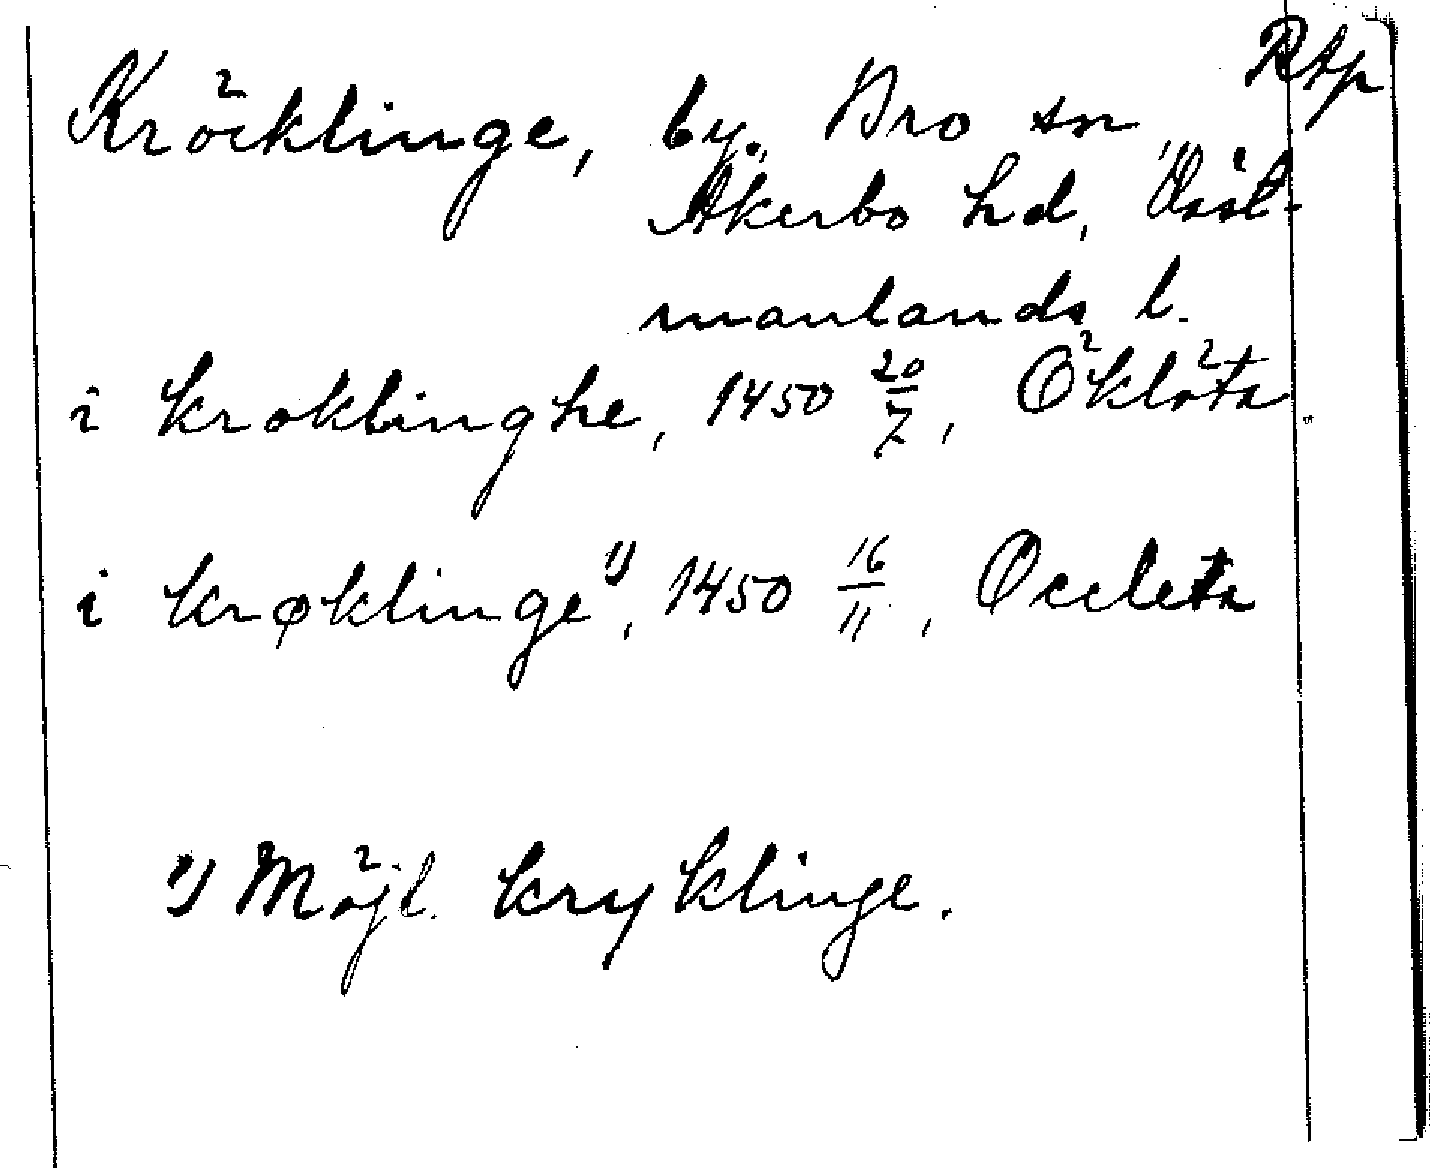 Rtp
Kröcklinge, by, Bro sn,
Åkerbo hd, Väst-
manlands l.
i kroklinghe, 1450 20/7, Öklöta
i krøklinge¹⁾, 1450 16/11, Øcleta
¹⁾ Möjl. kryklinge.